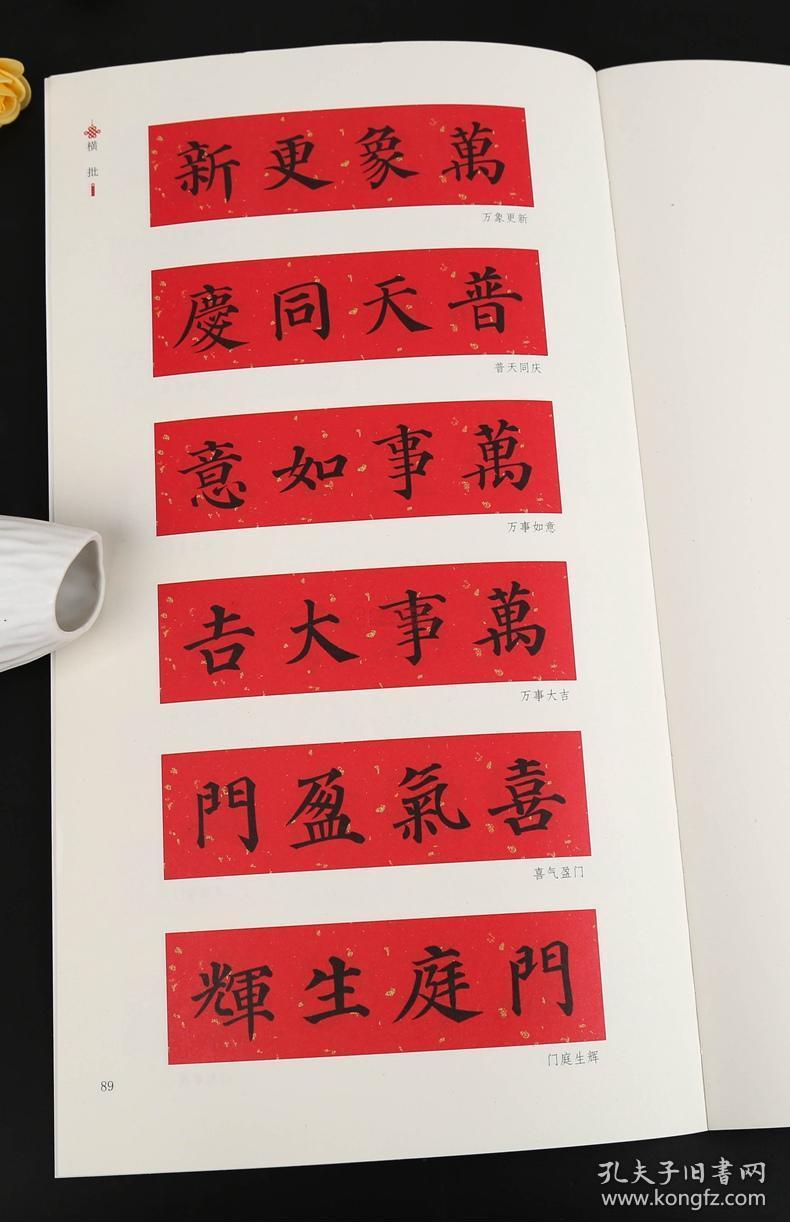 横批
萬象更新
万象更新
普天同慶
普天同庆
萬事如意
万事如意
萬事大吉
万事大吉
喜氣盈門
喜气盈门
門庭生輝
门庭生辉
89
孔夫子旧书网
www.kongfz.com